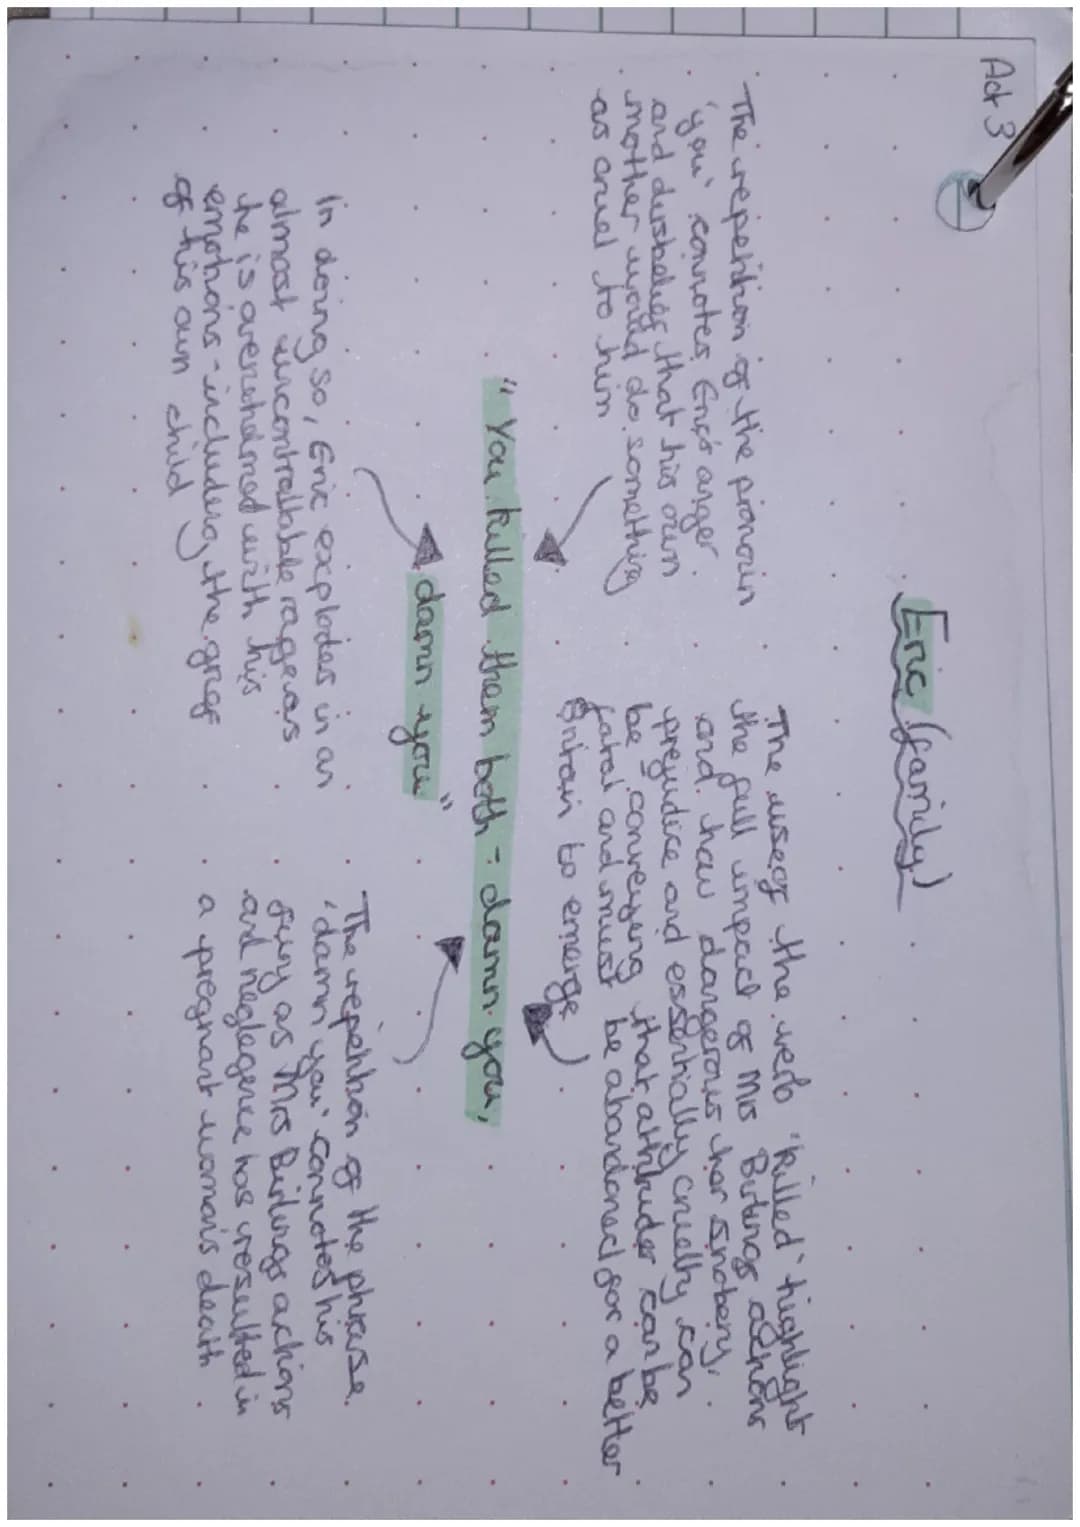 Act 3
Eric (family)
The repetition of the pronoun
'you' connotes Eric's anger
and disbelief that his own
mother would do something
as cruel to him
The use of the verb 'killed' highlight
the full impact of Mrs Birlings actions
and how dangerous her snobery,
prejudice and essentially cruelty can
be conveying that attituder can be
fatal and must be abandoned for a better
Britain to emerge
"You killed them both - damn you,
damn you"
In doing so, Eric explodes in an
almost uncontrollable rage as
he is overwhelmed with his
emotions - including the grief
of his own child
The repetition of the phrase
'damn you' connotes his
fury as Mrs Birlings actions
and neglegence has resulted in
a pregnant woman's death